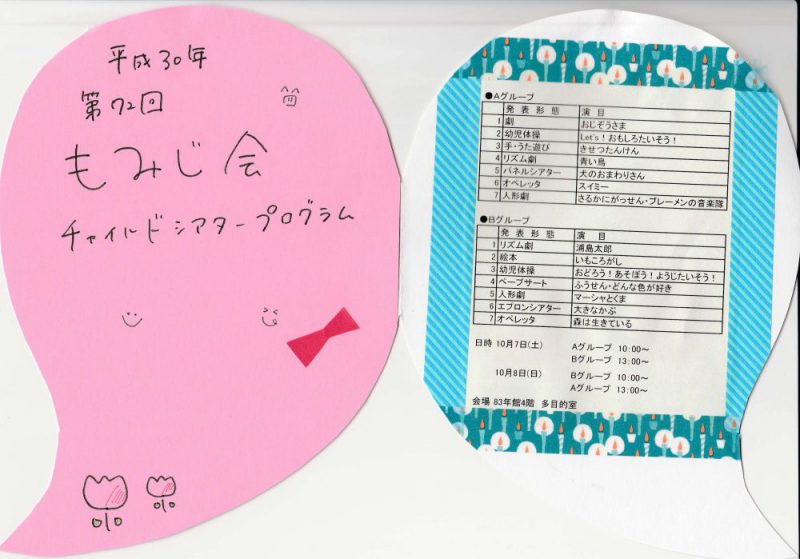 平成30年
第72回
もみじ会
チャイルドシアタープログラム
●Aグループ
発表形態 演目
1 劇 おじぞうさま
2 幼児体操 Let's！おもしろたいそう！
3 手・うた遊び きせつたんけん
4 リズム劇 青い鳥
5 パネルシアター 犬のおまわりさん
6 オペレッタ スイミー
7 人形劇 さるかにがっせん・ブレーメンの音楽隊
●Bグループ
発表形態 演目
1 リズム劇 浦島太郎
2 絵本 いもころがし
3 幼児体操 おどろう！あそぼう！ようじたいそう！
4 ペープサート ふうせん・どんな色が好き
5 人形劇 マーシャとくま
6 エプロンシアター 大きなかぶ
7 オペレッタ 森は生きている
日時 10月7日(土) Aグループ 10:00～
Bグループ 13:00～
10月8日(日) Bグループ 10:00～
Aグループ 13:00～
会場 83年館4階 多目的室